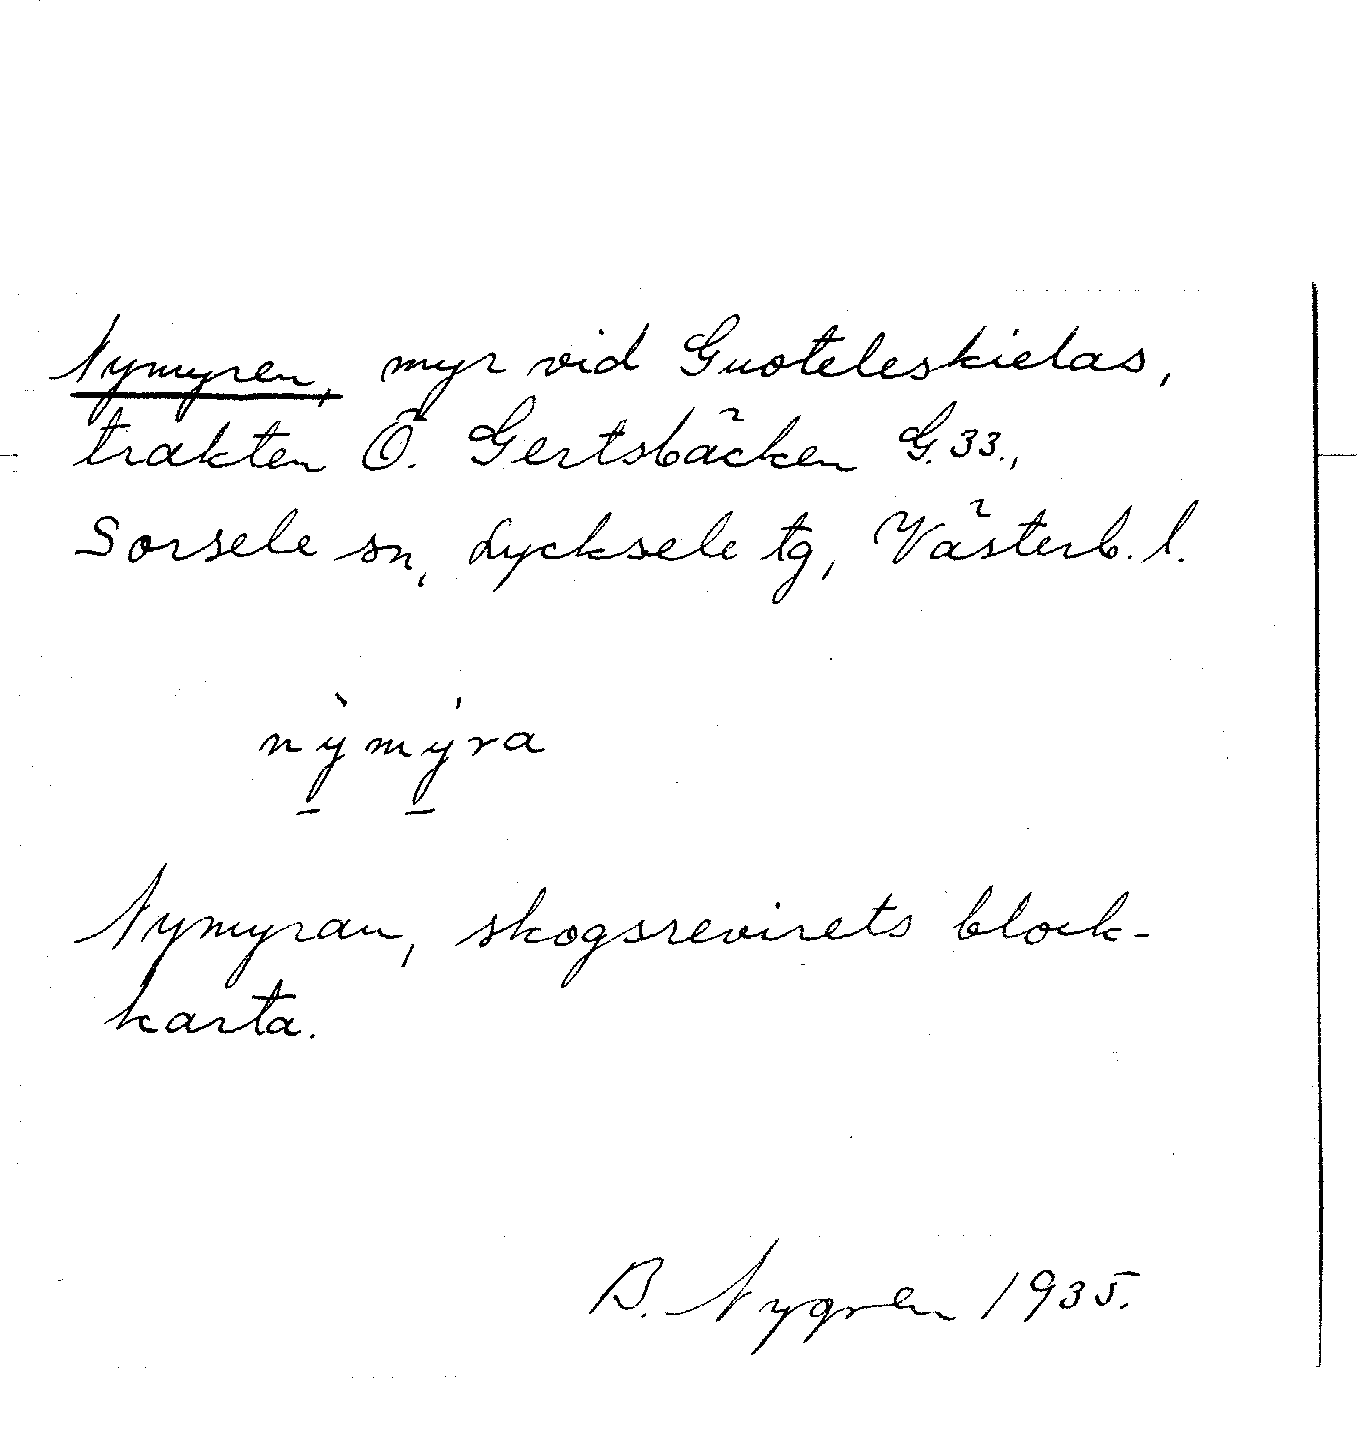 Nymyren, myr vid Guoteleskielas,
trakten Ö. Gertsbäcken G.33.,
Sorsele sn, Lycksele tg, Västerb. l.
nỳmýra
Nymyran, skogsrevirets block-
karta.
B. Nygren 1935.